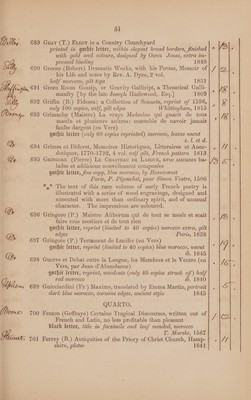 51
689 Gray (T.) Elegy in a Country Churchyard
printed in gothic letter, within elegant broad borders, finished with gold and colours, designed by Owen Jones, extra impressed binding 1848
690 Greene (Robert) Dramatic Works, with his Poems, Memoir of his Life and notes by Rev. A. Dyce, 2 vol.
half morocco, gilt tops 1831
691 Green Room Gossip, or Gravity Gallinipt, a Theatrical Gallimaufry [by the late Joseph Haslewood, Esq.] 1809
692 Griffin (B.) Fidessa; a Collection of Sonnets, reprint of 1596, only 100 copies, calf, gilt edges Whittingham, 1815
693 Grimache (Maistre) La vraye Medecine qui guarit de tous maulx et plusieurs aultres: ensemble de savoir jamais faulte dargent (en Vers)
gothic letter (only 60 copies reprinted) morocco, leaves uncut
s. l. et d.
694 Grimm et Diderot, Memoires Historiques, Litteraires et Anecdotiques, 1770-1792, 4 vol. calf gilt, French pattern 1814
695 Gringore (Pierre) Le Chasteau de Labour, avec aucunes balades et additions nouvellement composées
gothic letter, fine copy, blue morocco, by Bauzonnet
Paris, P. Pigouchet, pour Simon Vostre, 1500
*** The text of this rare volume of early French poetry is illustrated with a series of wood engravings, designed and executed with more than ordinary spirit, and of unusual character. The impressions are coloured.
696 Gringore (P.) Maistre Aliborum qui de tout se mesle et scait faire tous mestiers et de tout rien
gothic letter, reprint (limited to 40 copies) morocco extra, gilt edges Paris, 1838
697 Gringore (P.) Testament de Lucifer (en Vers)
gothic letter, reprint (limited to 40 copies) blue morocco, uncut
ib. 1845
698 Guerre et Debat entre la Langue, les Membres et le Ventre (en Vers, par Jean d'Abundance)
gothic letter, reprint, woodcuts (only 40 copies struck off) half red morocco ib. 1840
699 Guicciardini (Fr.) Maxims, translated by Emma Martin, portrait
dark blue morocco, carmine edges, ancient style 1845
QUARTO.
700 Fenton (Geffraye) Certaine Tragical Discourses, written out of French and Latin, no less profitable than pleasant
black letter, title in facsimile and leaf mended, morocco
T. Marshe, 1567
701 Ferrey (B.) Antiquities of the Priory of Christ Church, Hampshire, plates 1841